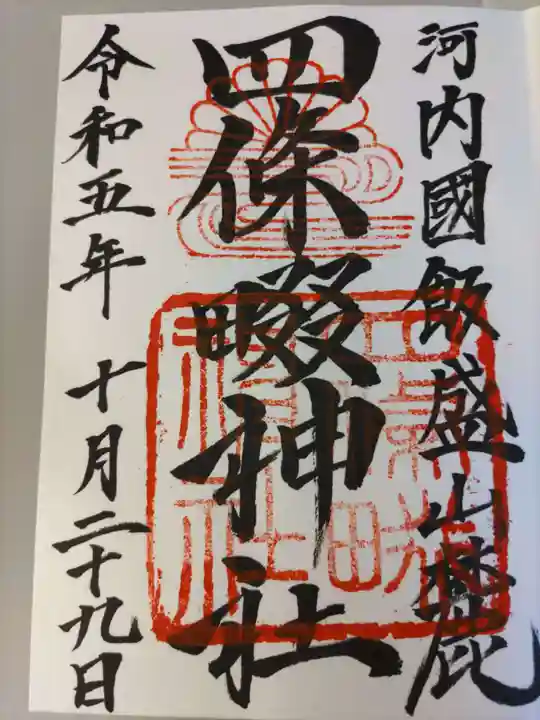 河内國飯盛山麓
四條畷神社
令和五年十月二十九日